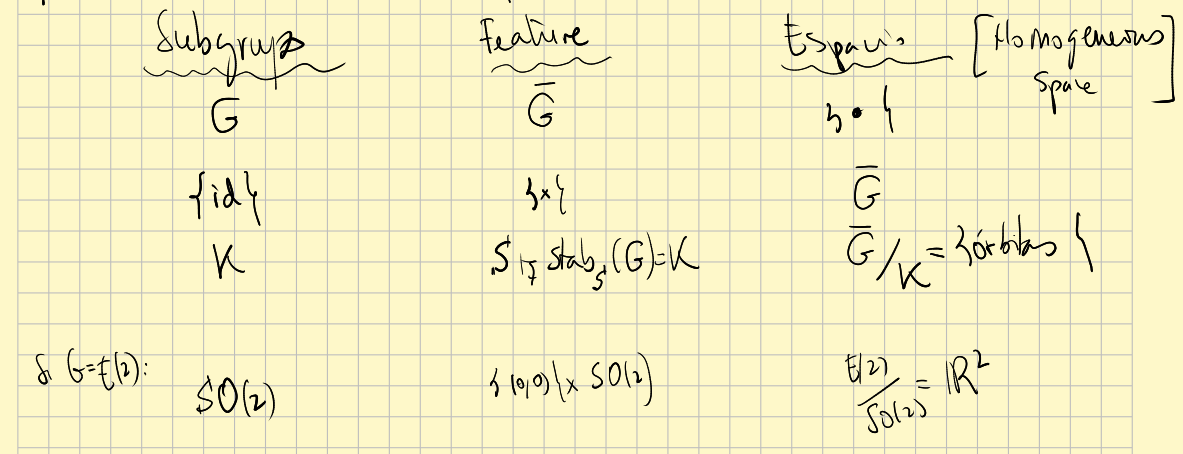 Subgrups Feature Espais [Homogeneous Space]
G Ḡ {•}
{id} {x} Ḡ
K S | Stab_S(G)=K Ḡ/K = {órbitas}
Si G=E(2): SO(2) {(0,0)} x SO(2) E(2)/SO(2) = ℝ²